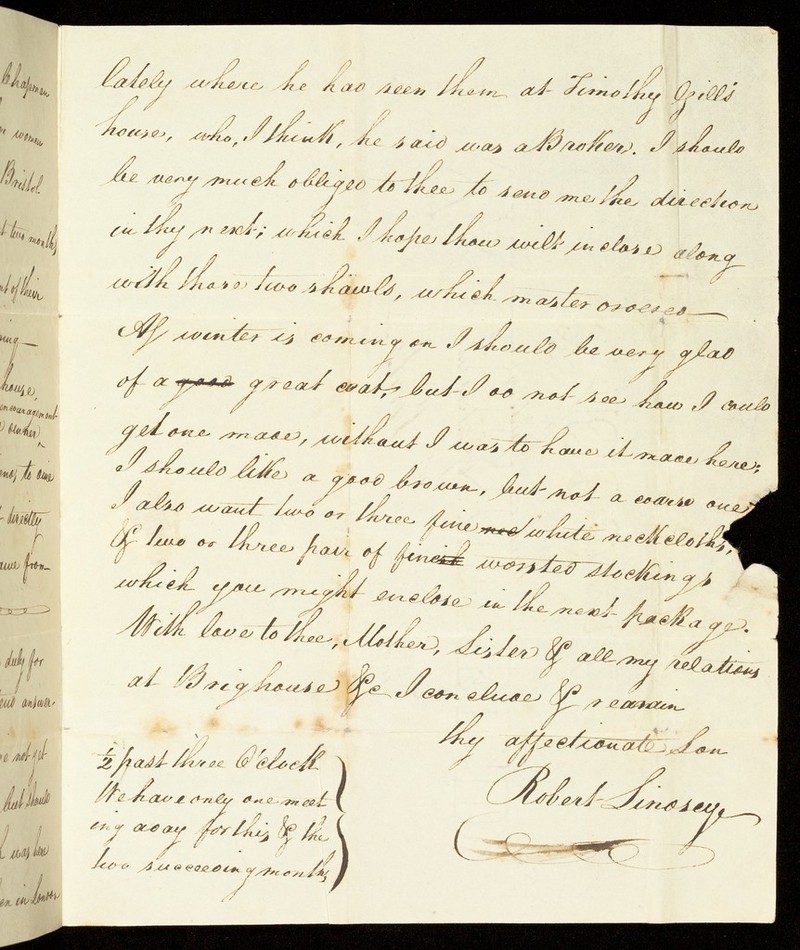 Chapman
women
Bristol
two months
of their
house,
encouragement
owner
to give
directly
came from
duly for
answer
not get
but should
was here
in London
lately where he had seen them at Timothy Gill's
house, who, I think, he said was a Broker. I should
be very much obliged to thee to send me the direction
in thy next; which I hope thou wilt inclose along
with those two shawls, which master ordered
As winter is coming on I should be very glad
of a good great coat, but I do not see how I could
get one made, without I was to have it made here;
I should like a good brown, but not a coarse one
I also want two or three fine nec white neckcloths,
& two or three pair of finish worsted stockings
which you might enclose in the next package.
With love to thee, Mother, Sister & all my relations
at Brighouse &c I conclude & remain
thy affectionate Son
Robert Lindsey
½ past three O'Clock
We have only one meet
ing aday for this & the
two succeeding months,